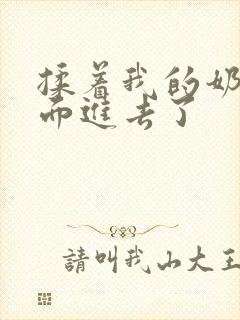 揉着我的奶
而進去了
請叫我山大王